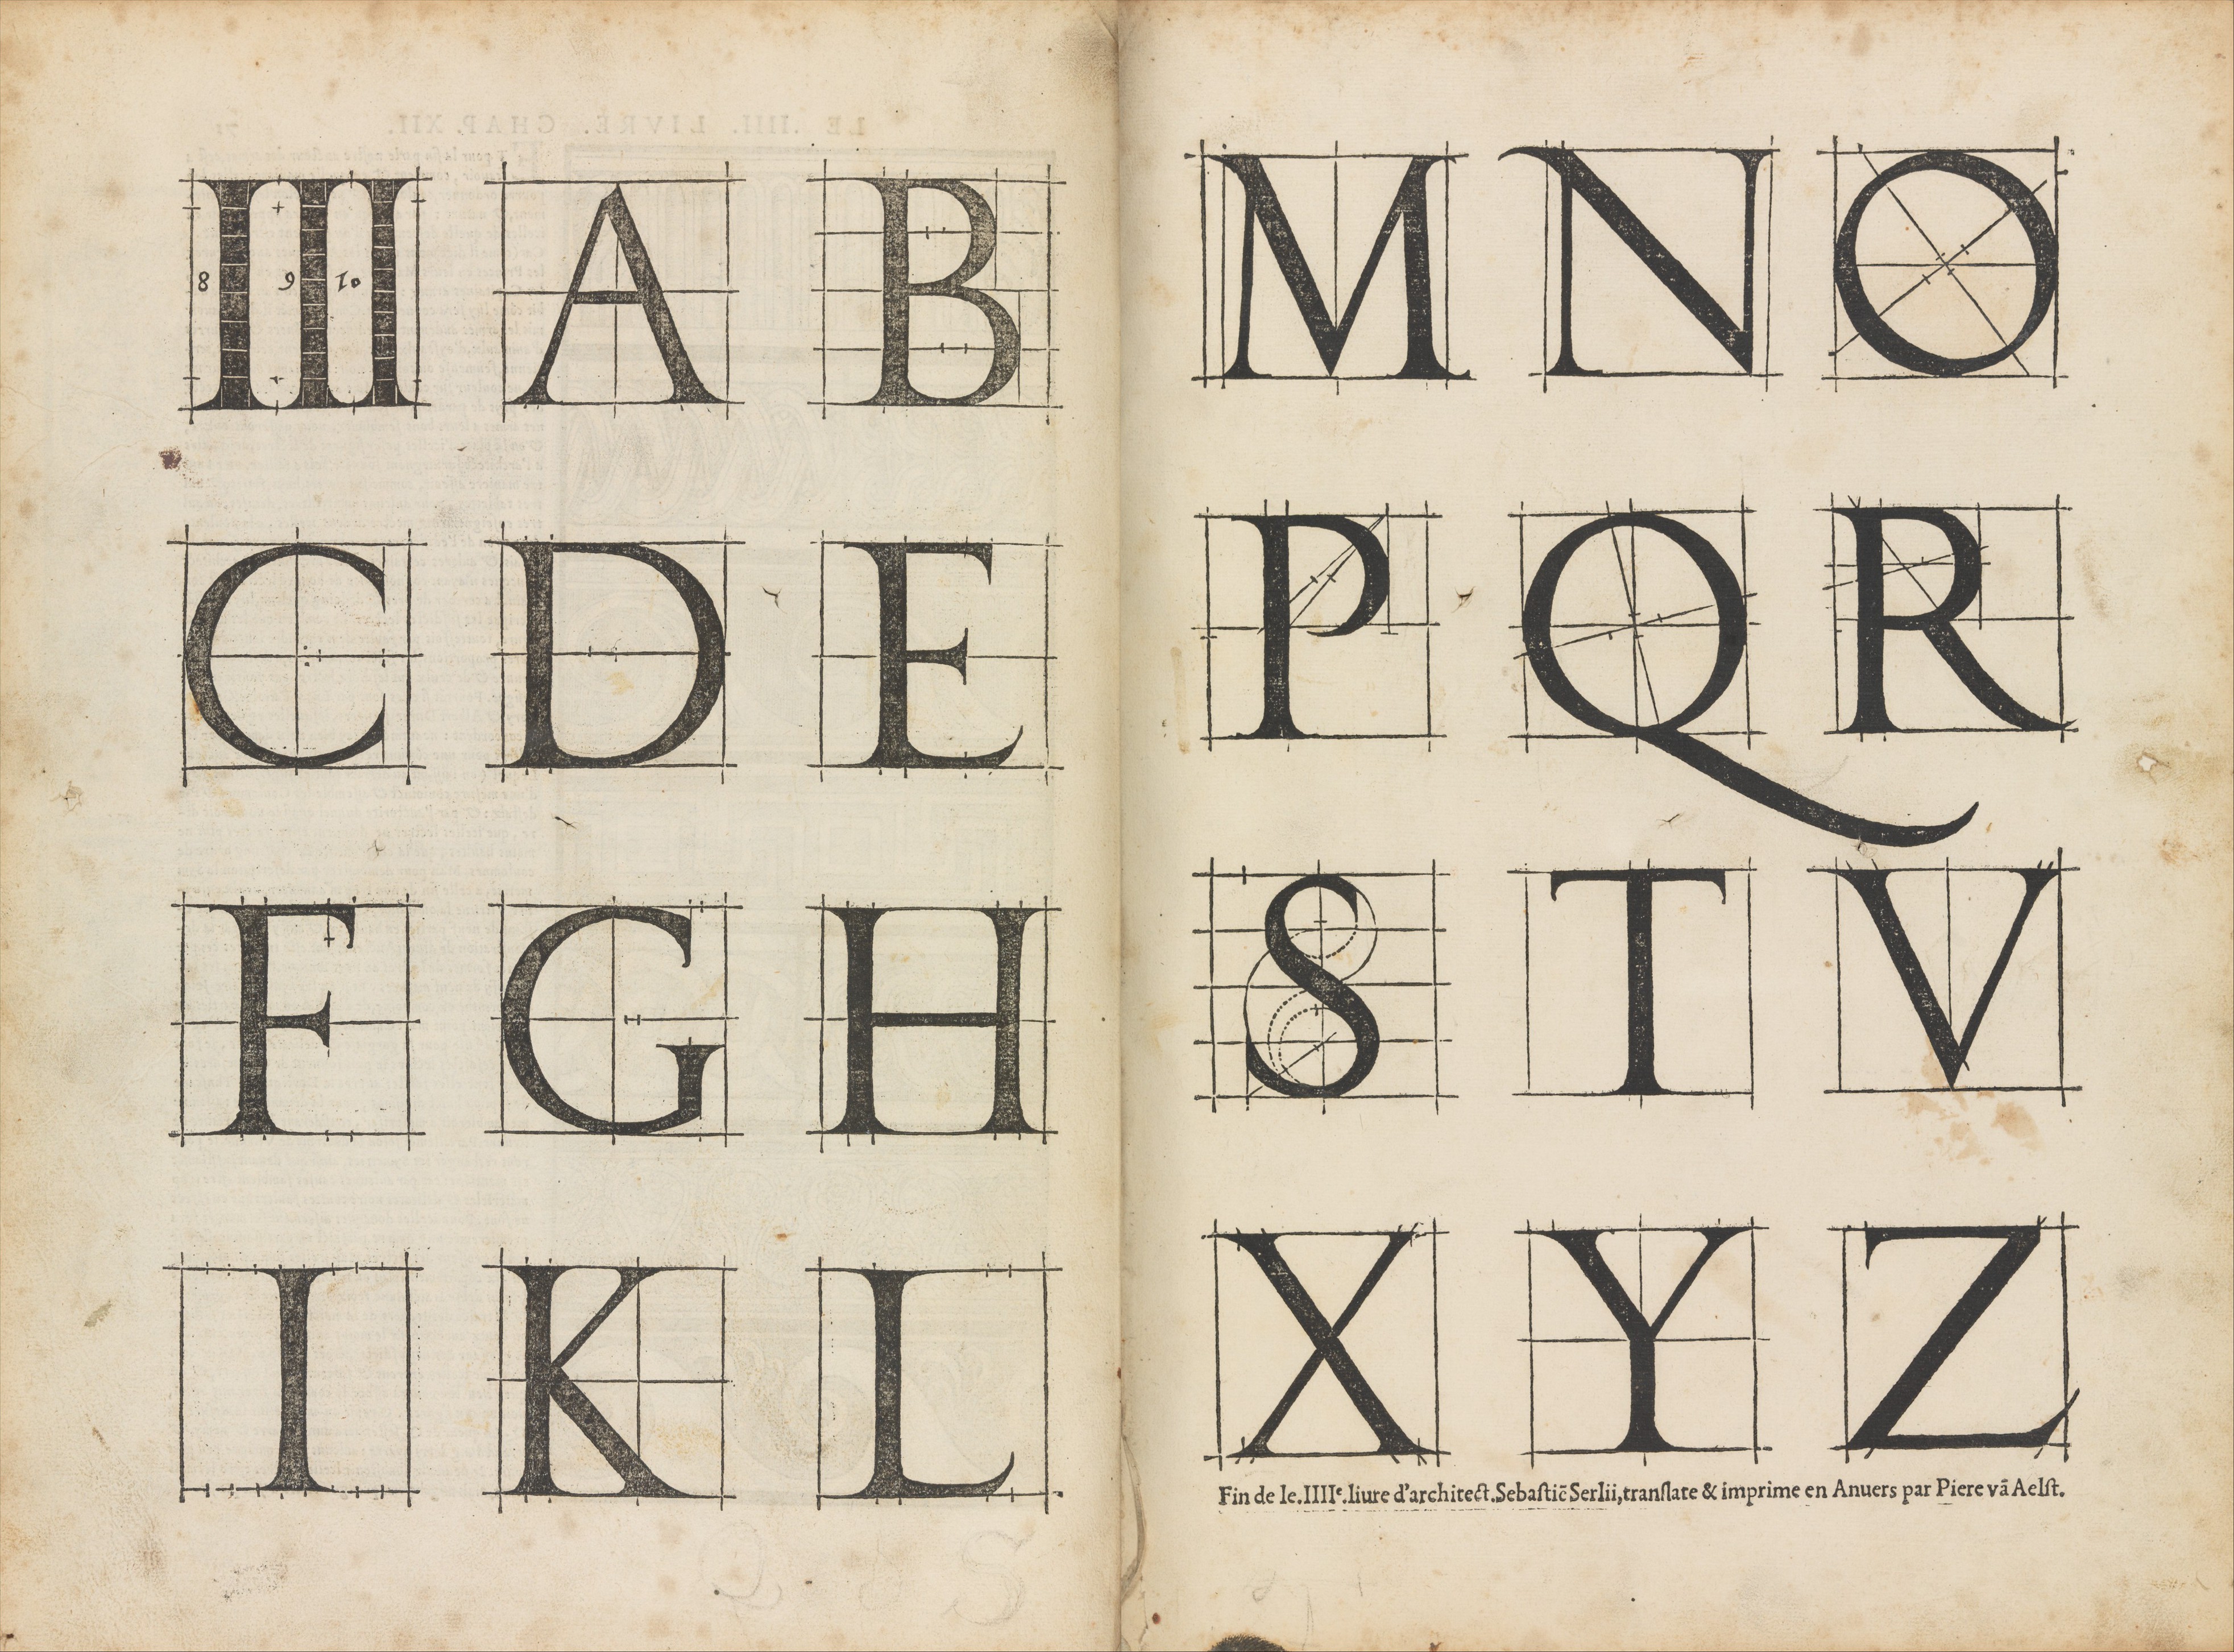 8 9 10 A B
C D E
F G H
I K L
M N O
P Q R
S T V
X Y Z
Fin de le.IIIIᵉ.liure d'architect.Sebaſtiē Serlii,tranſlate & imprime en Anuers par Piere vā Aelſt.